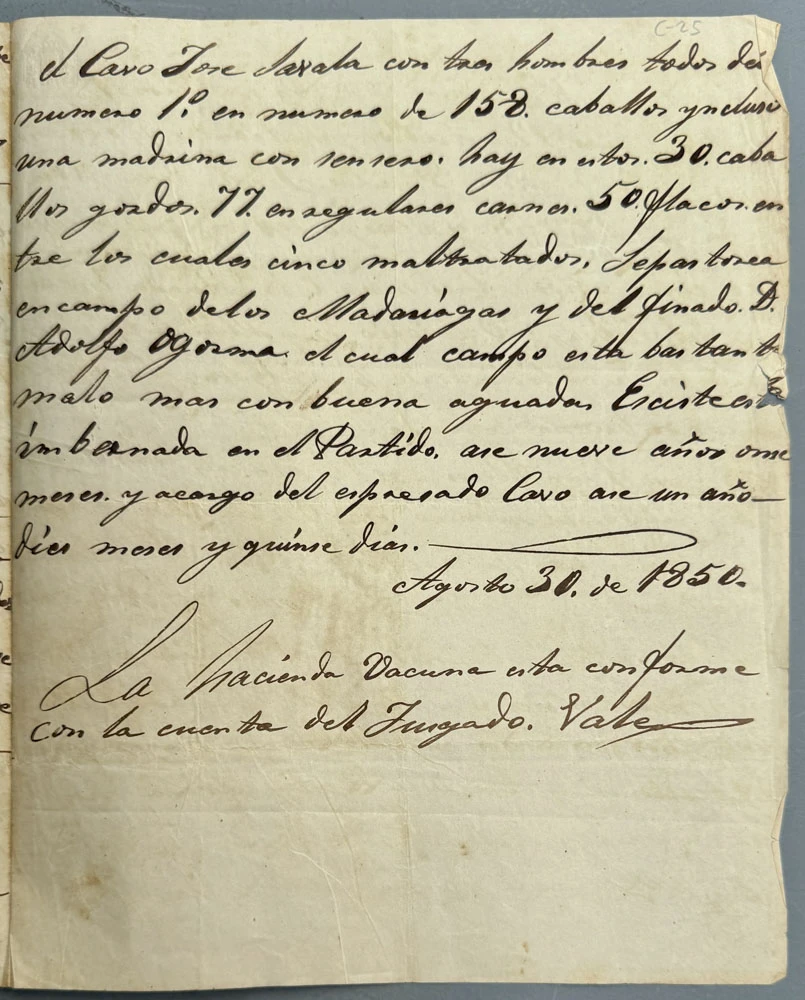 C-25
el Cavo Jose Savala con tres hombres todos del
numero 1.º en numero de 158. caballos yncluso
una madrina con sensero. hay en estos. 30. caba
llos gordos. 77. en regulares carnes. 50. flacos. en
tre los cuales cinco maltratados. Sepastorea
en campo delos Madariagas y del finado. D.
Adolfo Ogorma. el cual campo esta bastant
malo mas con buena aguadas Esciste esta
imbernada en el Partido. ase nueve años onse
meses. y acargo del espresado Cavo ase un año
dies meses y quinse dias.
Agosto 30. de 1850.
La hacienda Vacuna esta conforme
con la cuenta del Jusgado. Vale